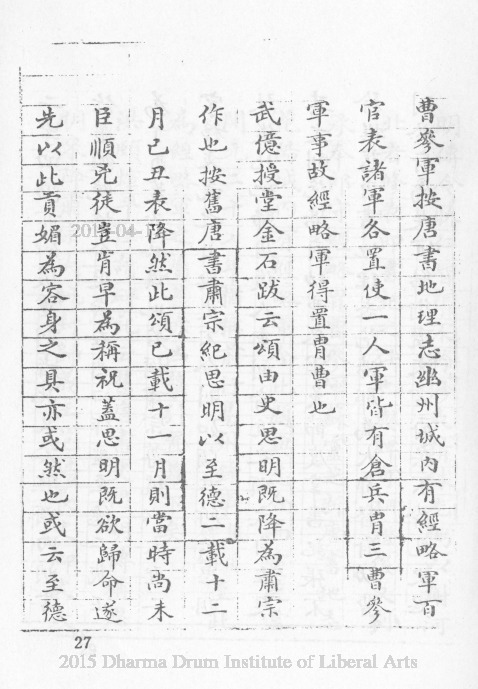 曹參軍按唐書地理志幽州城內有經略軍百
官表諸軍各置使一人軍皆有倉兵胄三曹參
軍事故經略軍得置胄曹也
武億授堂金石跋云頌由史思明既降為肅宗
作也按舊唐書肅宗紀思明以至德二載十二
月己丑表降然此頌已載十一月則當時尚未
臣順兇徒豈肯早為稱祝蓋思明既欲歸命遂
先以此貢媚為容身之具亦或然也或云至德
27
2015 Dharma Drum Institute of Liberal Arts